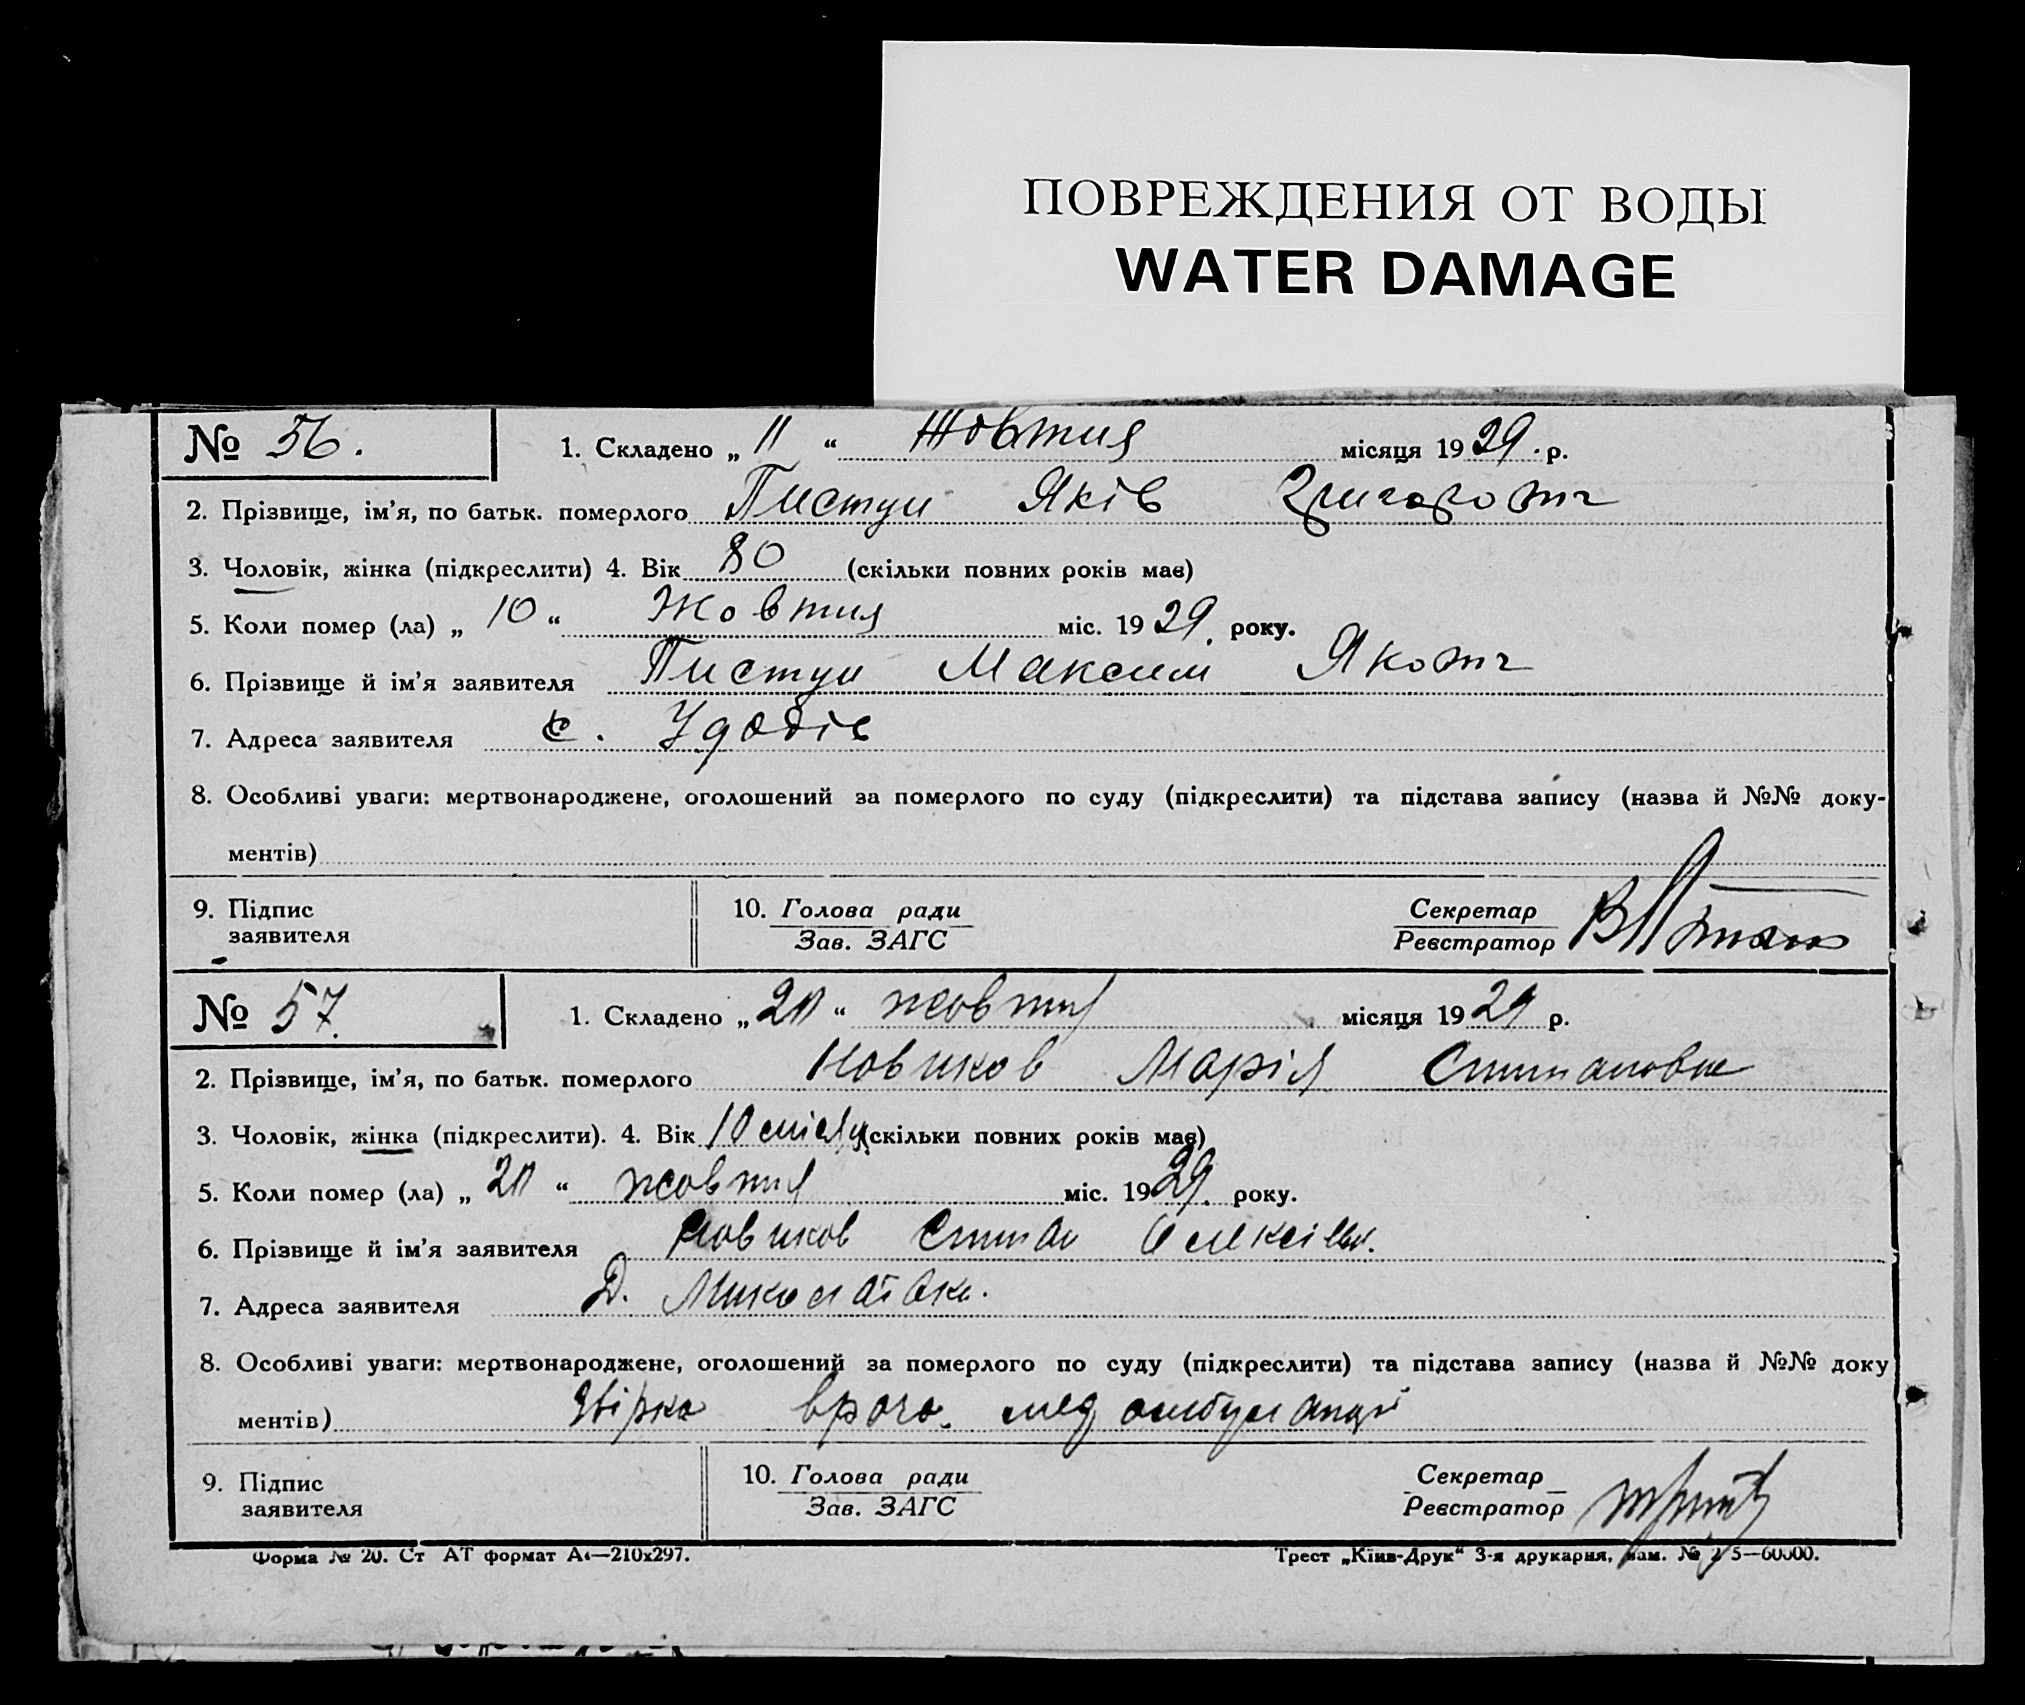 ПОВРЕЖДЕНИЯ ОТ ВОДЫ
WATER DAMAGE
№ 56. 1. Складено „ 11 “ Жовтня місяця 1929. р.
2. Прізвище, ім’я, по батьк. померлого Пистун Яків Григорович
3. Чоловік, жінка (підкреслити) 4. Вік 80 (скільки повних років має)
5. Коли помер (ла) „ 10 “ Жовтня міс. 1929. року.
6. Прізвище й ім’я заявителя Пистун Максим Якович
7. Адреса заявителя с. Удовів
8. Особливі уваги: мертвонароджене, оголошений за померлого по суду (підкреслити) та підстава запису (назва й №№ доку-
ментів)
9. Підпис 10. Голова ради Секретар
заявителя Зав. ЗАГС Реєстратор
№ 57. 1. Складено „ 20 “ жовтня місяця 1929 р.
2. Прізвище, ім’я, по батьк. померлого Новиков Марія Степановна
3. Чоловік, жінка (підкреслити). 4. Вік 10 місяц (скільки повних років має)
5. Коли помер (ла) „ 20 “ жовтня міс. 1929. року.
6. Прізвище й ім’я заявителя Новиков Степан Олексієв.
7. Адреса заявителя Д. Миколаївка.
8. Особливі уваги: мертвонароджене, оголошений за померлого по суду (підкреслити) та підстава запису (назва й №№ доку
ментів) врача мед амбулаторії
9. Підпис 10. Голова ради Секретар
заявителя Зав. ЗАГС Реєстратор
Форма № 20. Ст АТ формат А4—210х297. Трест „Київ-Друк“ 3-я друкарня, зам. №